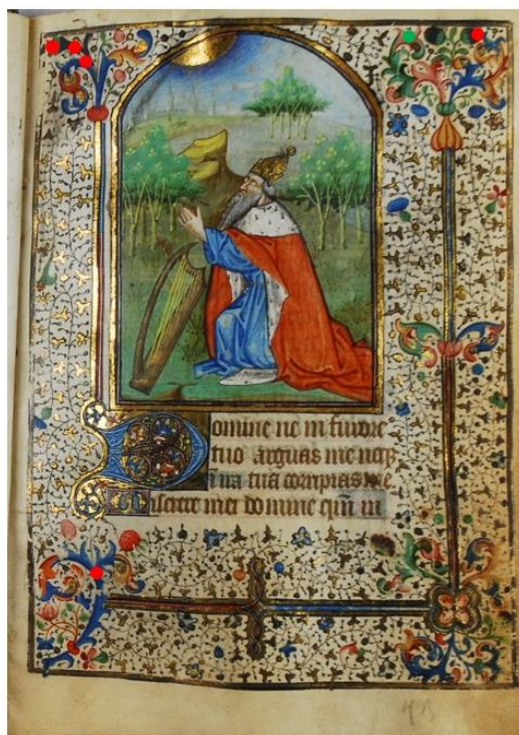 Domine ne in furore
tuo arguas me neqꝫ
in ira tua corripias me
Miserere mei domine qm̄ in